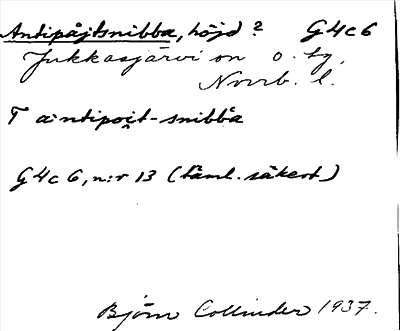 Antipåjtsnibba, höjd? G4c6
Jukkasjärvi sn o. tg,
Norrb. l.
T a:ntipoit-snibba
G4c6, n:r 13 (täml. säkert)
Björn Collinder 1937.